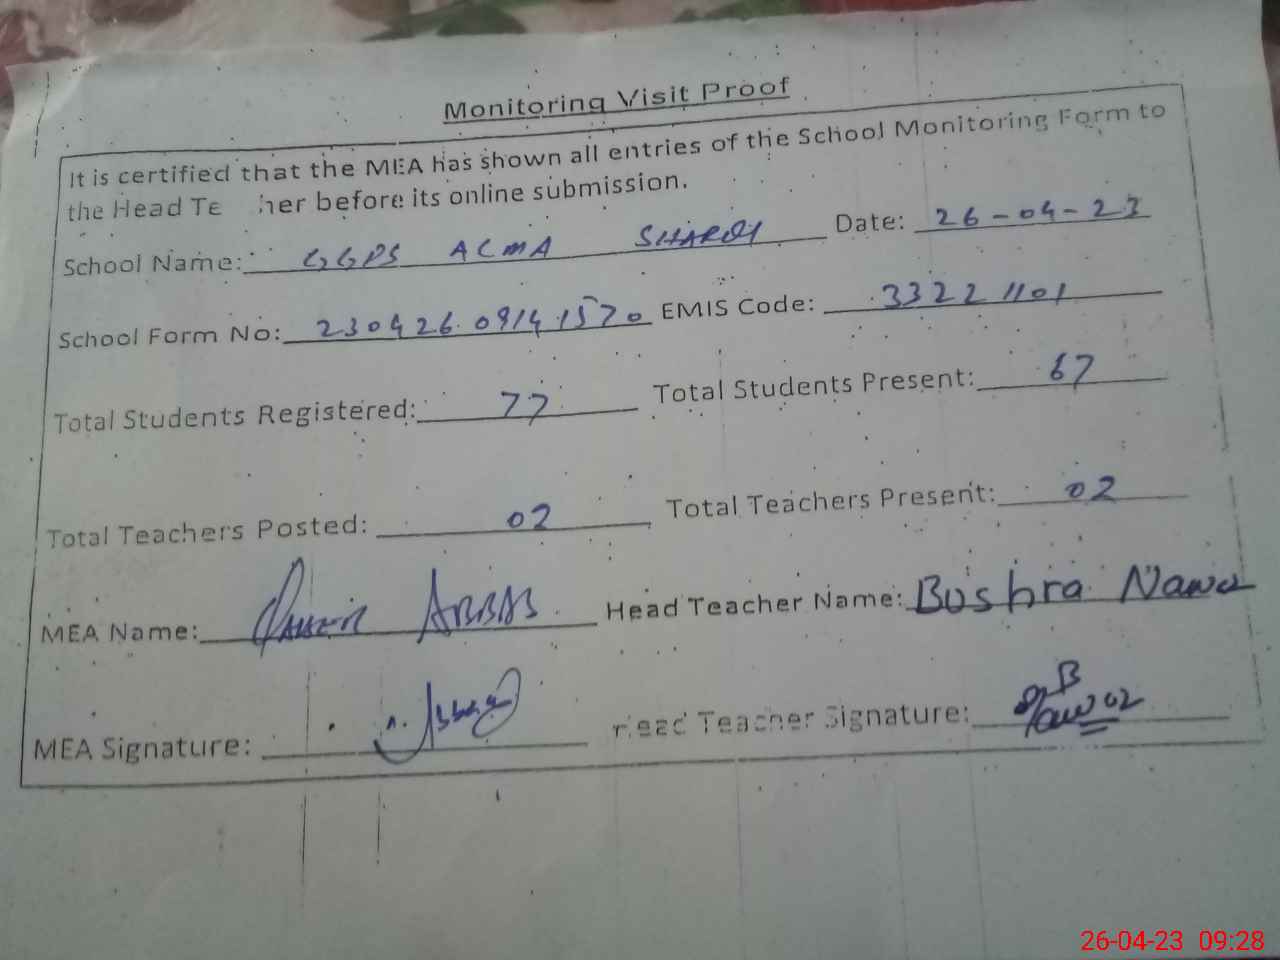 Monitoring Visit Proof
It is certified that the MEA has shown all entries of the School Monitoring Form to
the Head Te her before its online submission.
School Name: GGPS ACMA SHARQI Date: 26-04-23
School Form No: 230426.0914.1570 EMIS Code: 33221101
Total Students Registered: 77 Total Students Present: 67
Total Teachers Posted: 02 Total Teachers Present: 02
MEA Name: ABBAS Head Teacher Name: Boshra
MEA Signature: Head Teacher Signature:
26-04-23 09:28